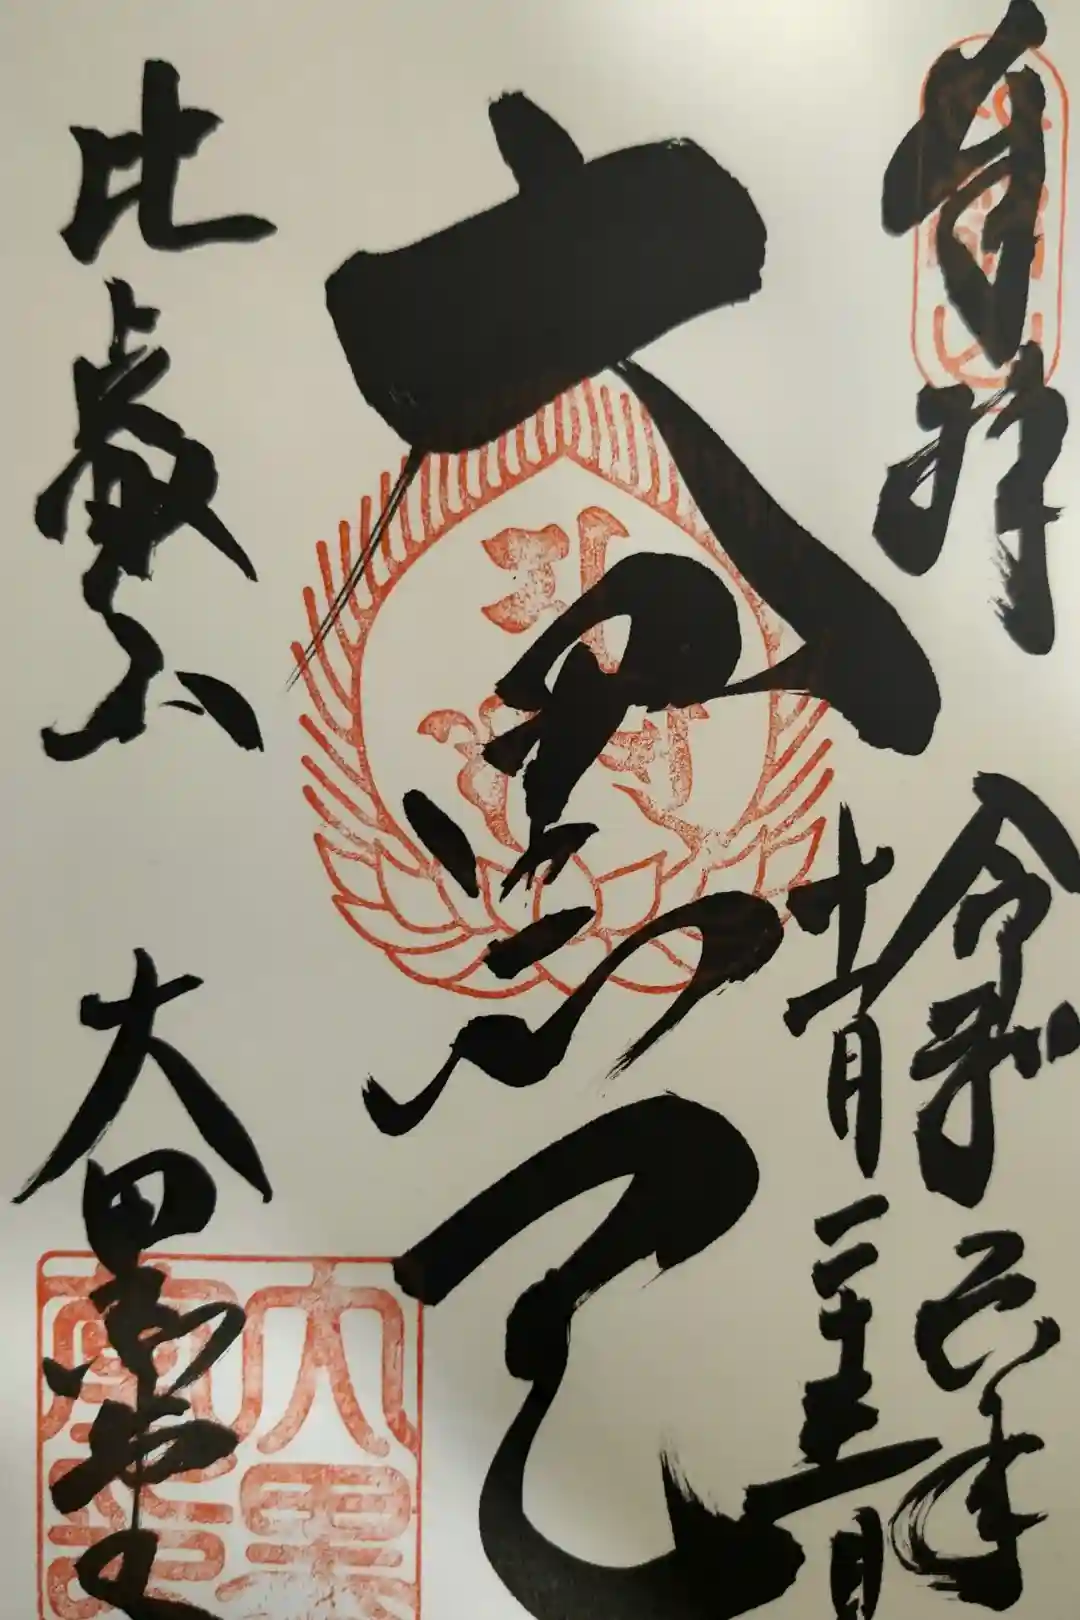 奉拝
令和六年
十一月二十五日
大黒天
比叡山
大黒堂
大黒
堂印